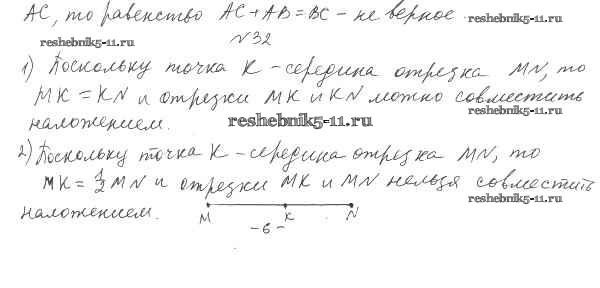 AC, то равенство AC + AB = BC – не верное
reshebnik5-11.ru
reshebnik5-11.ru
№32
1) Поскольку точка K – середина отрезка MN, то
MK = KN и отрезки MK и KN можно совместить
reshebnik5-11.ru
наложением.
reshebnik5-11.ru
2) Поскольку точка K – середина отрезка MN, то
MK = 1/2 MN и отрезки MK и MN нельзя совместить
reshebnik5-11.ru
наложением.
M K N
– 6 –